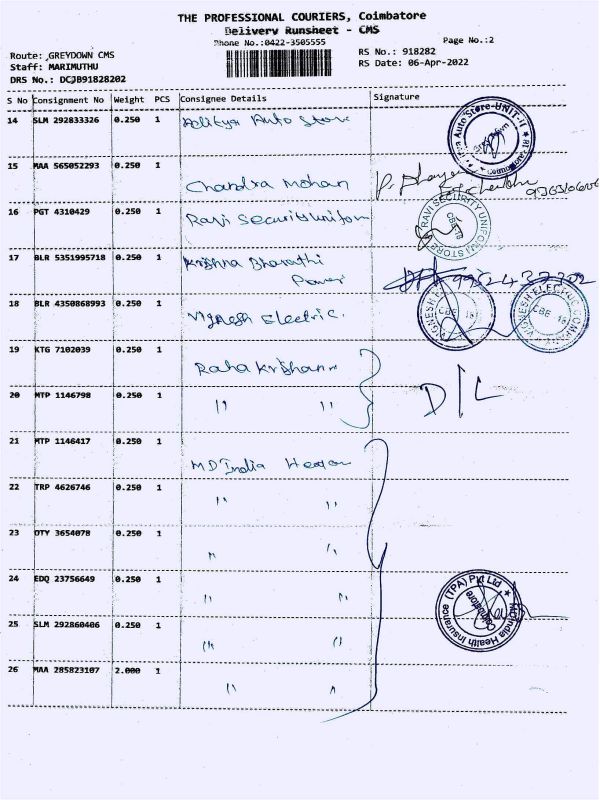 THE PROFESSIONAL COURIERS, Coimbatore
Delivery Runsheet - CMS
Phone No.:0422-3505555 Page No.:2
Route: GREYDOWN CMS RS No.: 918282
Staff: MARIMUTHU RS Date: 06-Apr-2022
DRS No.: DCJB91828202
S No Consignment No Weight PCS Consignee Details Signature
14 SLM 292833326 0.250 1 Aditya Auto Store
Auto Store-UNIT-II
15 MAA 565052293 0.250 1 Chandra Mohan
16 PGT 4310429 0.250 1 Ravi Security Uniform
RAVI SECURITY UNIFORM STORE
17 BLR 5351995718 0.250 1 Krishna Bharathi
Power
18 BLR 4350868993 0.250 1 Vignesh Electric.
VIGNESH ELECTRIC COMPANY
CBE 18
VIGNESH ELECTRIC COMPANY
CBE 18
19 KTG 7102039 0.250 1
20 MTP 1146798 0.250 1 " "
D/L
21 MTP 1146417 0.250 1 MD India
22 TRP 4626746 0.250 1 " "
23 OTY 3654078 0.250 1 " "
24 EDQ 23756649 0.250 1 " "
MDIndia Health Insurance (TPA) Pvt Ltd
25 SLM 292860406 0.250 1 " "
26 MAA 285823107 2.000 1 " "